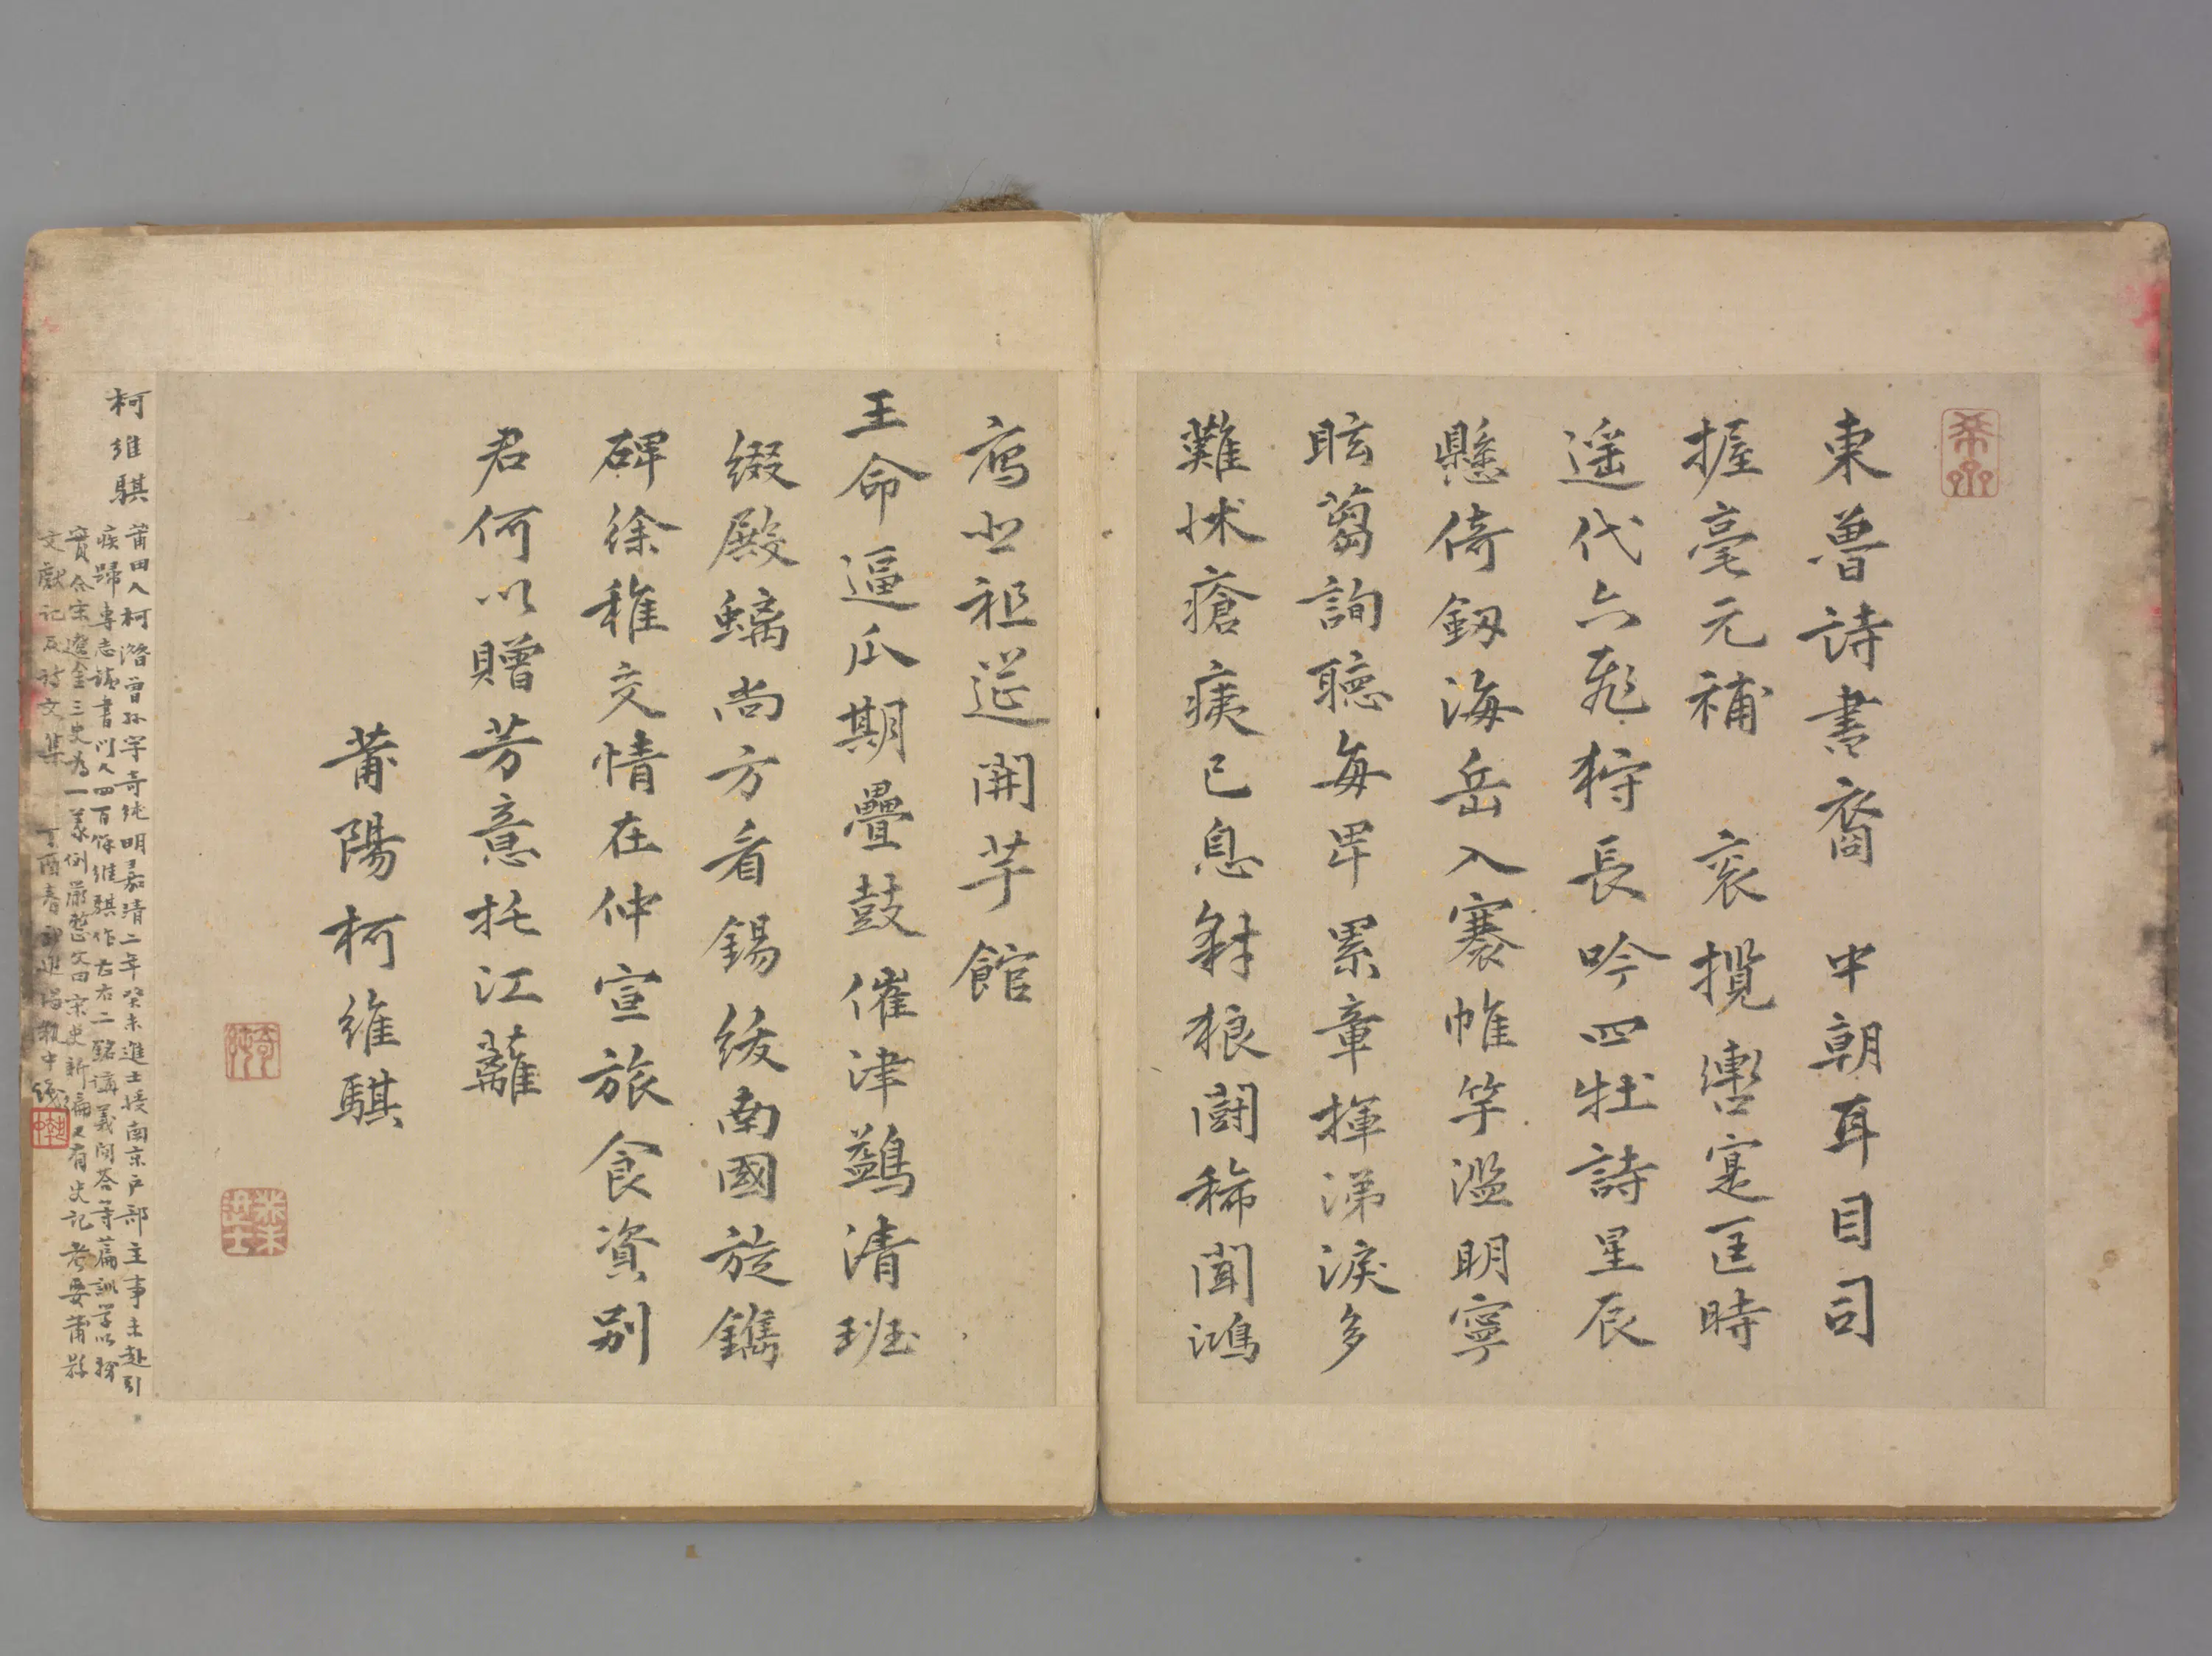 東魯詩書裔 中朝耳目司
握毫元補 袞攬轡寔匡時
遥代六飛狩長吟四牡詩星辰
懸倚釼海岳入褰帷竿濫明寧
眩蒭詢聽每卑累章揮涕淚多
難怵瘡痍已息豺狼鬪稀聞鴻
鴈悲祖莚開芋館
王命逼瓜期疊鼓催津鷁清班
綴殿螭尚方看錫綬南國旋鐫
碑徐稚交情在仲宣旅食資别
君何以贈芳意托江蘺
莆陽柯維騏
柯維騏
莆田人柯潛曾孫字奇純明嘉靖二年癸未進士授南京户部主事未赴引
疾歸專志讀書門人四百餘維騏作左右二銘講義問答等篇訓學以
實合宋遼金三史為一義例嚴整 曰宋史新編又有史記考要莆縣
文獻記及詩文集 丁酉春
奇純
癸未進士